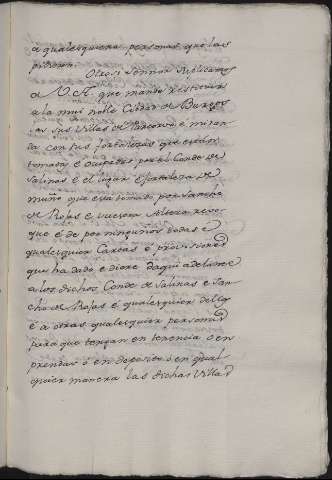 a qualesquiera personas que las
pidieren.
Otrosi Señor suplicamos
a V. A. que mande restituir
a la mui noble Cibdad de Burgos
las sus Villas de Pancorvo é Miran-
da con sus fortalezas que estan
tomadas é ocupadas por el Conde de
Salinas é el lugar é fortaleza de
Muño que esta tomado por Sancho
de Rojas é vuestra Alteza revo-
que é dé por ningunos todas é
qualesquier Cartas é provisiones
que ha dado é diere daqui adelante
a los dichos Conde de Salinas é San-
cho de Rojas é qualesquier de llos
é a otras qualesquier personas
para que tengan en tenencia ó en
prendas ó en deposito ó en qual-
quier manera las dichas Villas